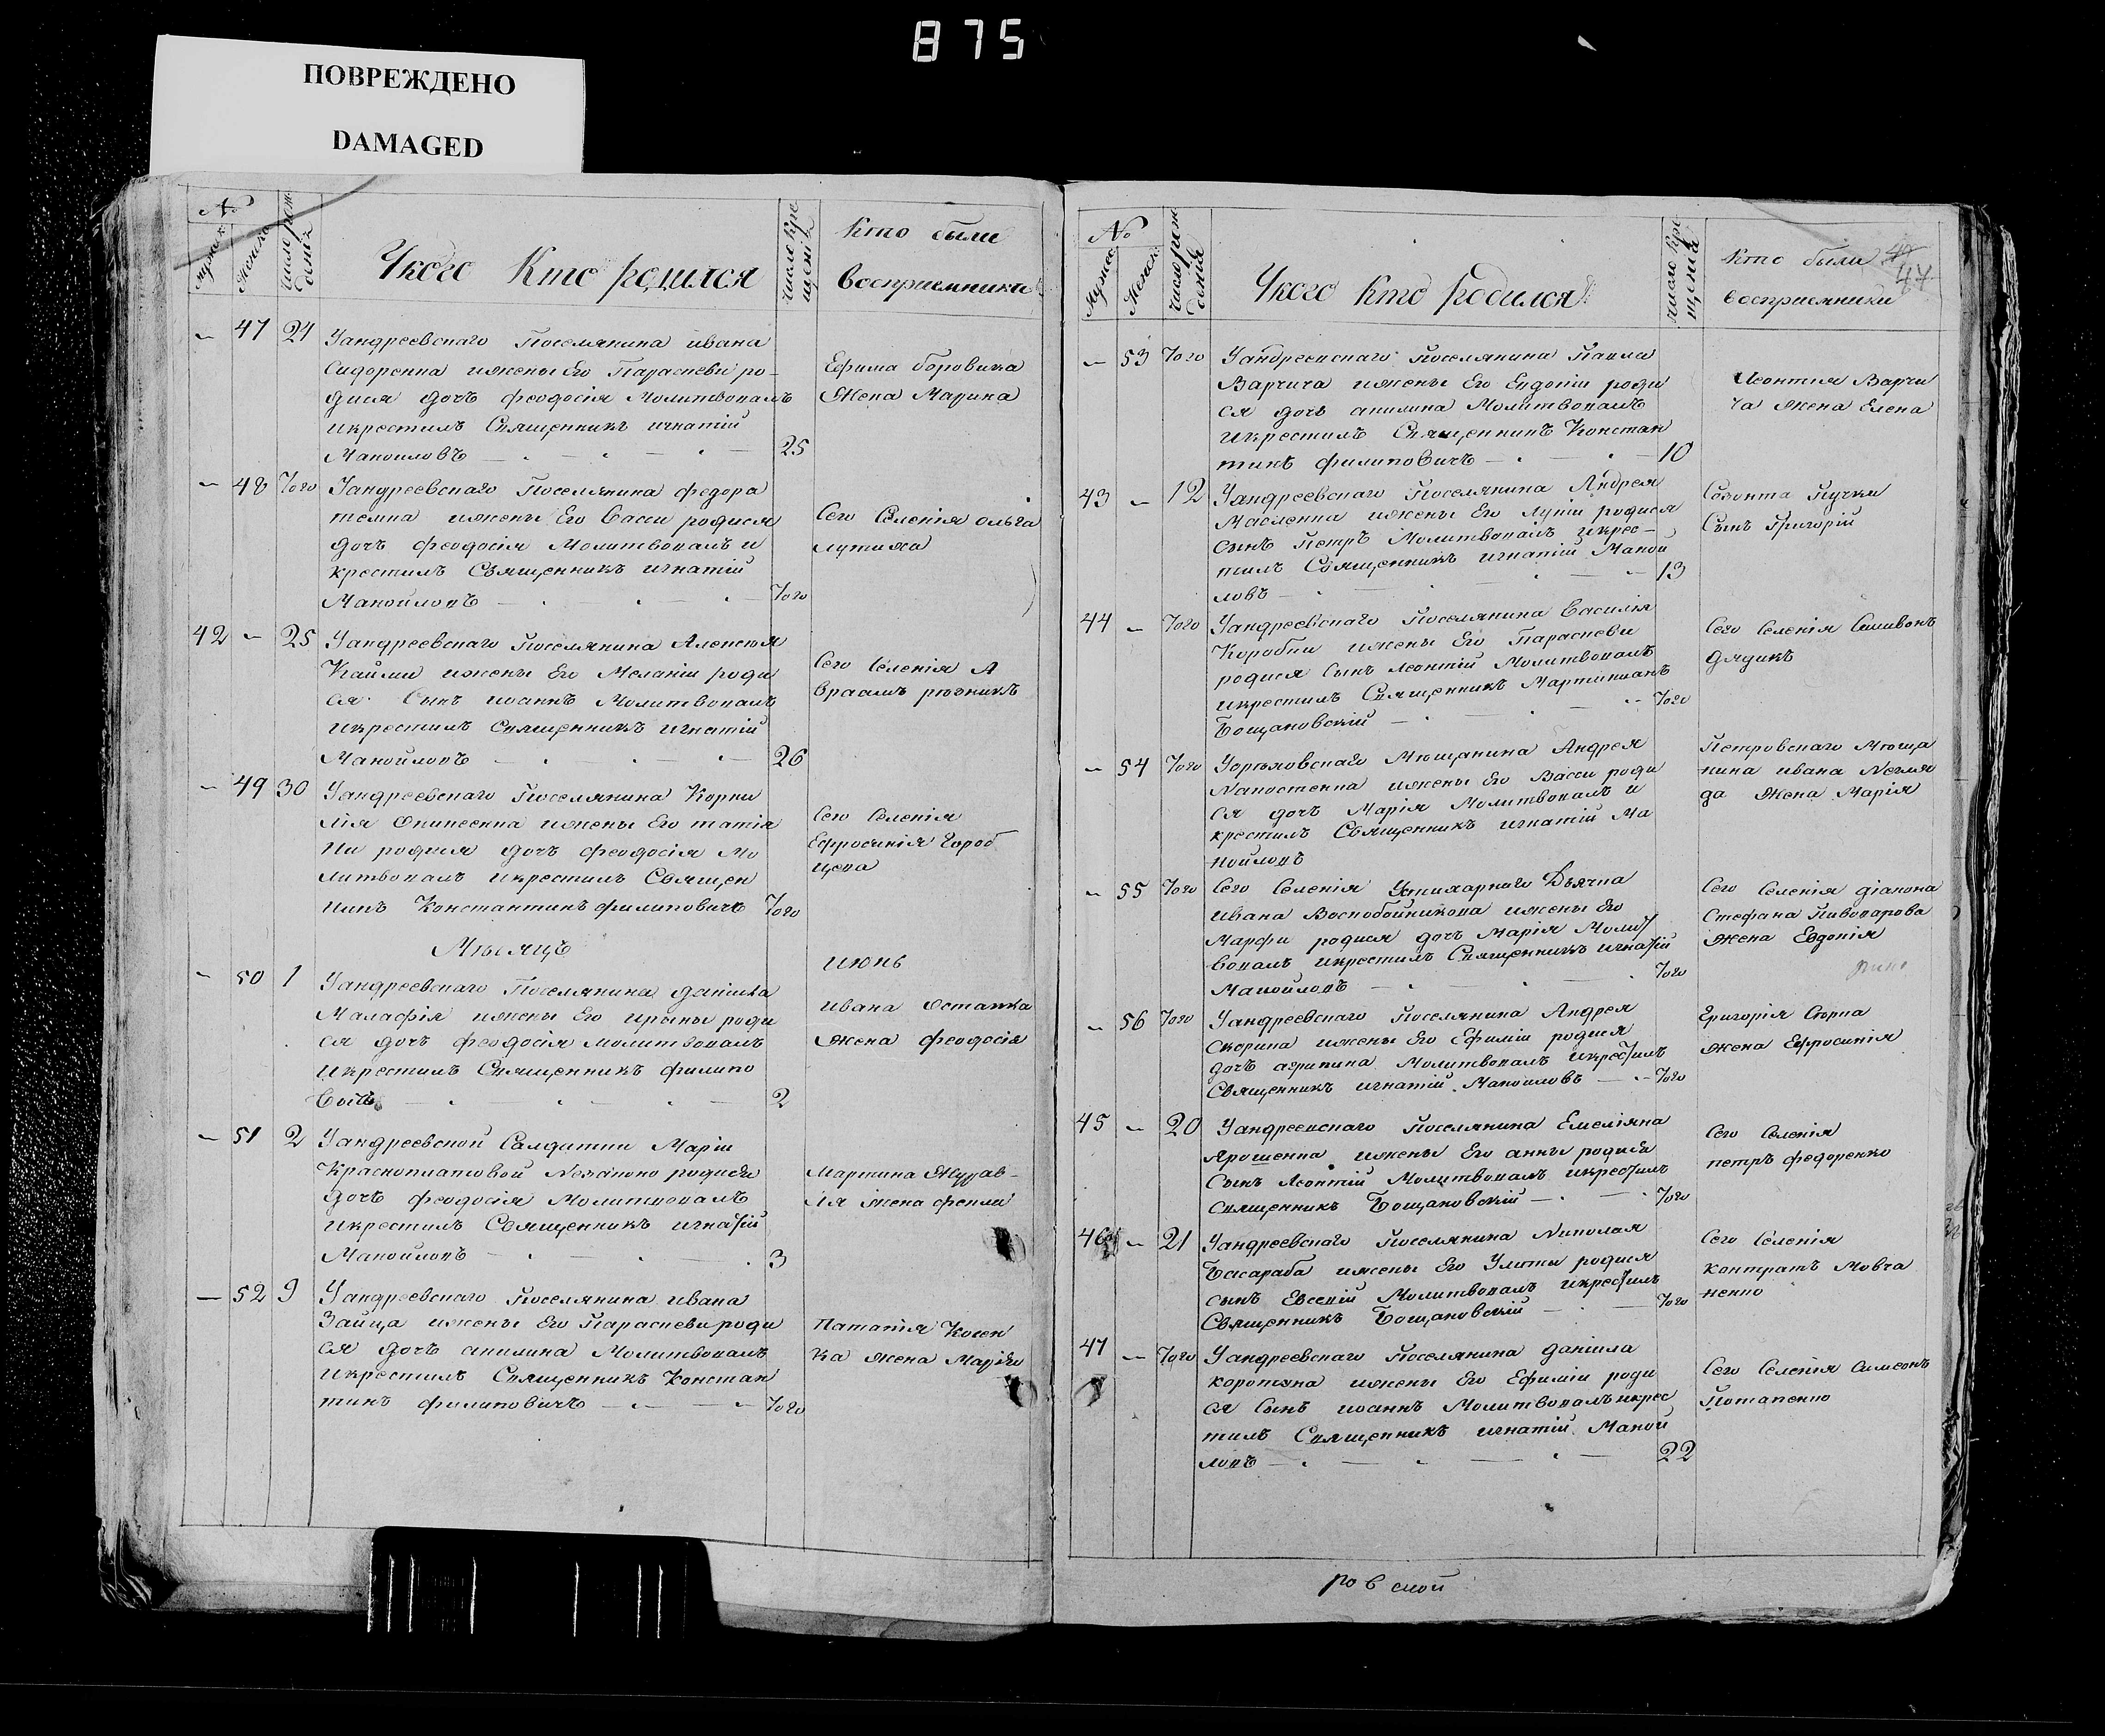 875
ПОВРЕЖДЕНО
DAMAGED
№
мужск
женска
число рож
денія
Укого Кто родился
число кре
щенія
кто были
восприемники
— 47 24 Уандреевскаго Поселянина ивана
Сидоренка ижены Его Параскеви ро-
дися дочь феодосія Молитвовалъ
икрестилъ Священникъ игнатій
Манойловъ — 25
Ефима боровика
Жена Марина
— 48 Того Уандреевскаго Поселянина федора
темна ижены Его Васси родися
дочь феодосія Молитвовалъ и
крестилъ Священникъ игнатій
Манойловъ — Того
Сего Селенія ольга
лутика
42 — 25 Уандреевскаго Поселянина Алексея
Кайми ижены Его Меланіи роди
ся Сынъ иоаннъ Молитвовалъ
икрестилъ Священникъ игнатій
Манойловъ — 26
Сего Селенія А
враамъ
— 49 30 Уандреевскаго Поселянина Корни
лія ижены Его татія
ни родися дочь феодосія Мо
литвовалъ икрестилъ Священ
никъ Константинъ филиповичъ Того
Сего Селенія
Ефросинія Город
цева
Мѣсяцъ июнь
— 50 1 Уандреевскаго Поселянина даніила
Малафія ижены Его ирыны роди
ся дочь феодосія молитвовалъ
икрестилъ Священникъ филипо
вичъ — 2
ивана Остапка
жена феодосія
— 51 2 Уандреевской Салдатки Маріи
Краснолатовой Незаконо родися
дочь феодосія Молитвовалъ
икрестилъ Священникъ игнатій
Манойловъ — 3
Мартина Журав-
ля жена фекли
— 52 9 Уандреевскаго Поселянина ивана
Зайца ижены Его Параскеви роди
ся дочь акилина Молитвовалъ
икрестилъ Священникъ Констан
тинъ филиповичъ — Того
Потапія
ка жена Марія
№
мужск
женск
число рож
денія
Укого кто родился
число кре
щенія
кто были
восприемники
47
— 53 Того Уандреевскаго Поселянина Павла
Варчича ижены Его Евдокіи роди
ся дочь акилина Молитвовалъ
икрестилъ Священникъ Констан
тинъ филиповичъ — 10
Леонтия Варчи
ча жена Елена
43 — 12 Уандреевскаго Поселянина Андрея
Масленка ижены Его Лукіи родися
сынъ Петръ Молитвовалъ икрес-
тилъ Священникъ игнатій Маной
ловъ — 13
Созонта Пучки
Сынъ Григорій
44 — Того Уандреевскаго Поселянина Василія
Коробки ижены Его Параскеви
родися Сынъ леонтій Молитвовалъ
икрестилъ Священникъ Мартиніанъ
Бощановскій — Того
Сего Селенія Симвонъ
дядикъ
— 54 Того Мещанина Андрея
ижены Его Васси роди
ся дочь Марія Молитвовалъ и
крестилъ Священникъ игнатій Ма
нойловъ
Петровскаго Меща
нина ивана
да Жена Марія
— 55 Того Сего Селенія Дьячка
ивана Воскобойникова ижены Его
Марфи родися дочь Марія Молит
вовалъ икрестилъ Священникъ игнатій
Манойловъ — Того
Сего Селенія діакона
Стефана Пивоварова
жена Евдокія
— 56 Того Уандреевскаго Поселянина Андрея
Скорика ижены Его Ефиміи родися
дочь агрипина Молитвовалъ икрестилъ
Священникъ игнатій Манойловъ — Того
Григорія
жена Ефросинія
45 — 20 Уандреевскаго Поселянина Емеліяна
Ярошенка ижены Его анны родися
Сынъ Леонтій Молитвовалъ икрестилъ
священникъ Бощановскій — Того
Сего Селенія
петръ федоренко
46 — 21 Уандреевскаго Поселянина Николая
Басараба ижены Его Улиты родися
сынъ Евсевій Молитвовалъ икрестилъ
Священникъ Бощановскій — Того
Сего Селенія
контратъ Мовча
ненко
47 — Того Уандреевскаго Поселянина даніила
коротяна ижены Его Ефиміи роди
ся Сынъ иоаннъ Молитвовалъ икрес
тилъ Священникъ игнатій Маной
ловъ — 22
Сего Селенія Симеонъ
Потапенко
ровской